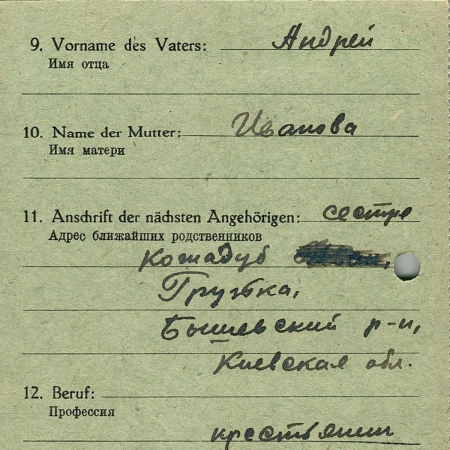 9. Vorname des Vaters: Андрей
Имя отца
10. Name der Mutter: Иванова
Имя матери
11. Anschrift der nächsten Angehörigen: сестре
Адрес ближайших родственников
Кошадуб
Грузка,
Бышевский р-н,
Киевская обл.
12. Beruf:
Профессия
крестьянин